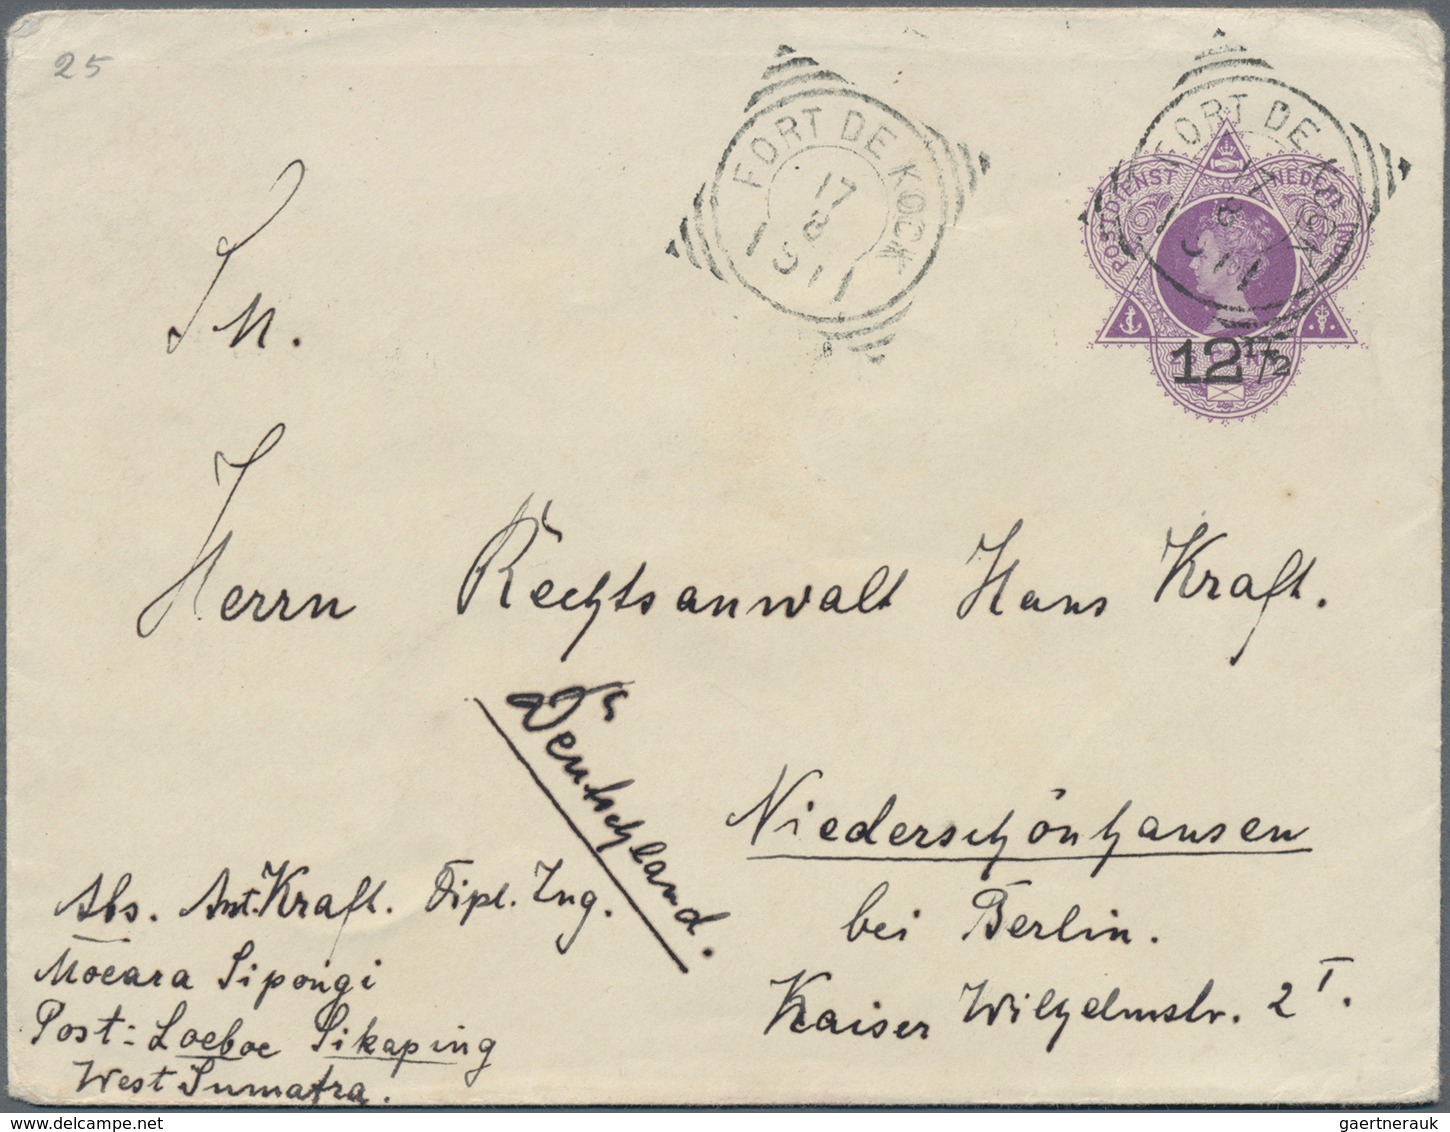 25
FORT DE KOCK
17
8
1911
FORT DE KOCK
17
8
1911
POSTDIENST NEDERL. IND.
12 1/2
Sr.
Herrn Rechtsanwalt Hans Kraft.
Deutschland.
Niederschönhausen
bei Berlin.
Kaiser Wilhelmstr. 2 I.
Abs. Ant. Kraft. Dipl. Ing.
Moeara Sipongi
Post: Loeboe Sikaping
West Sumatra.
gaertnerauk